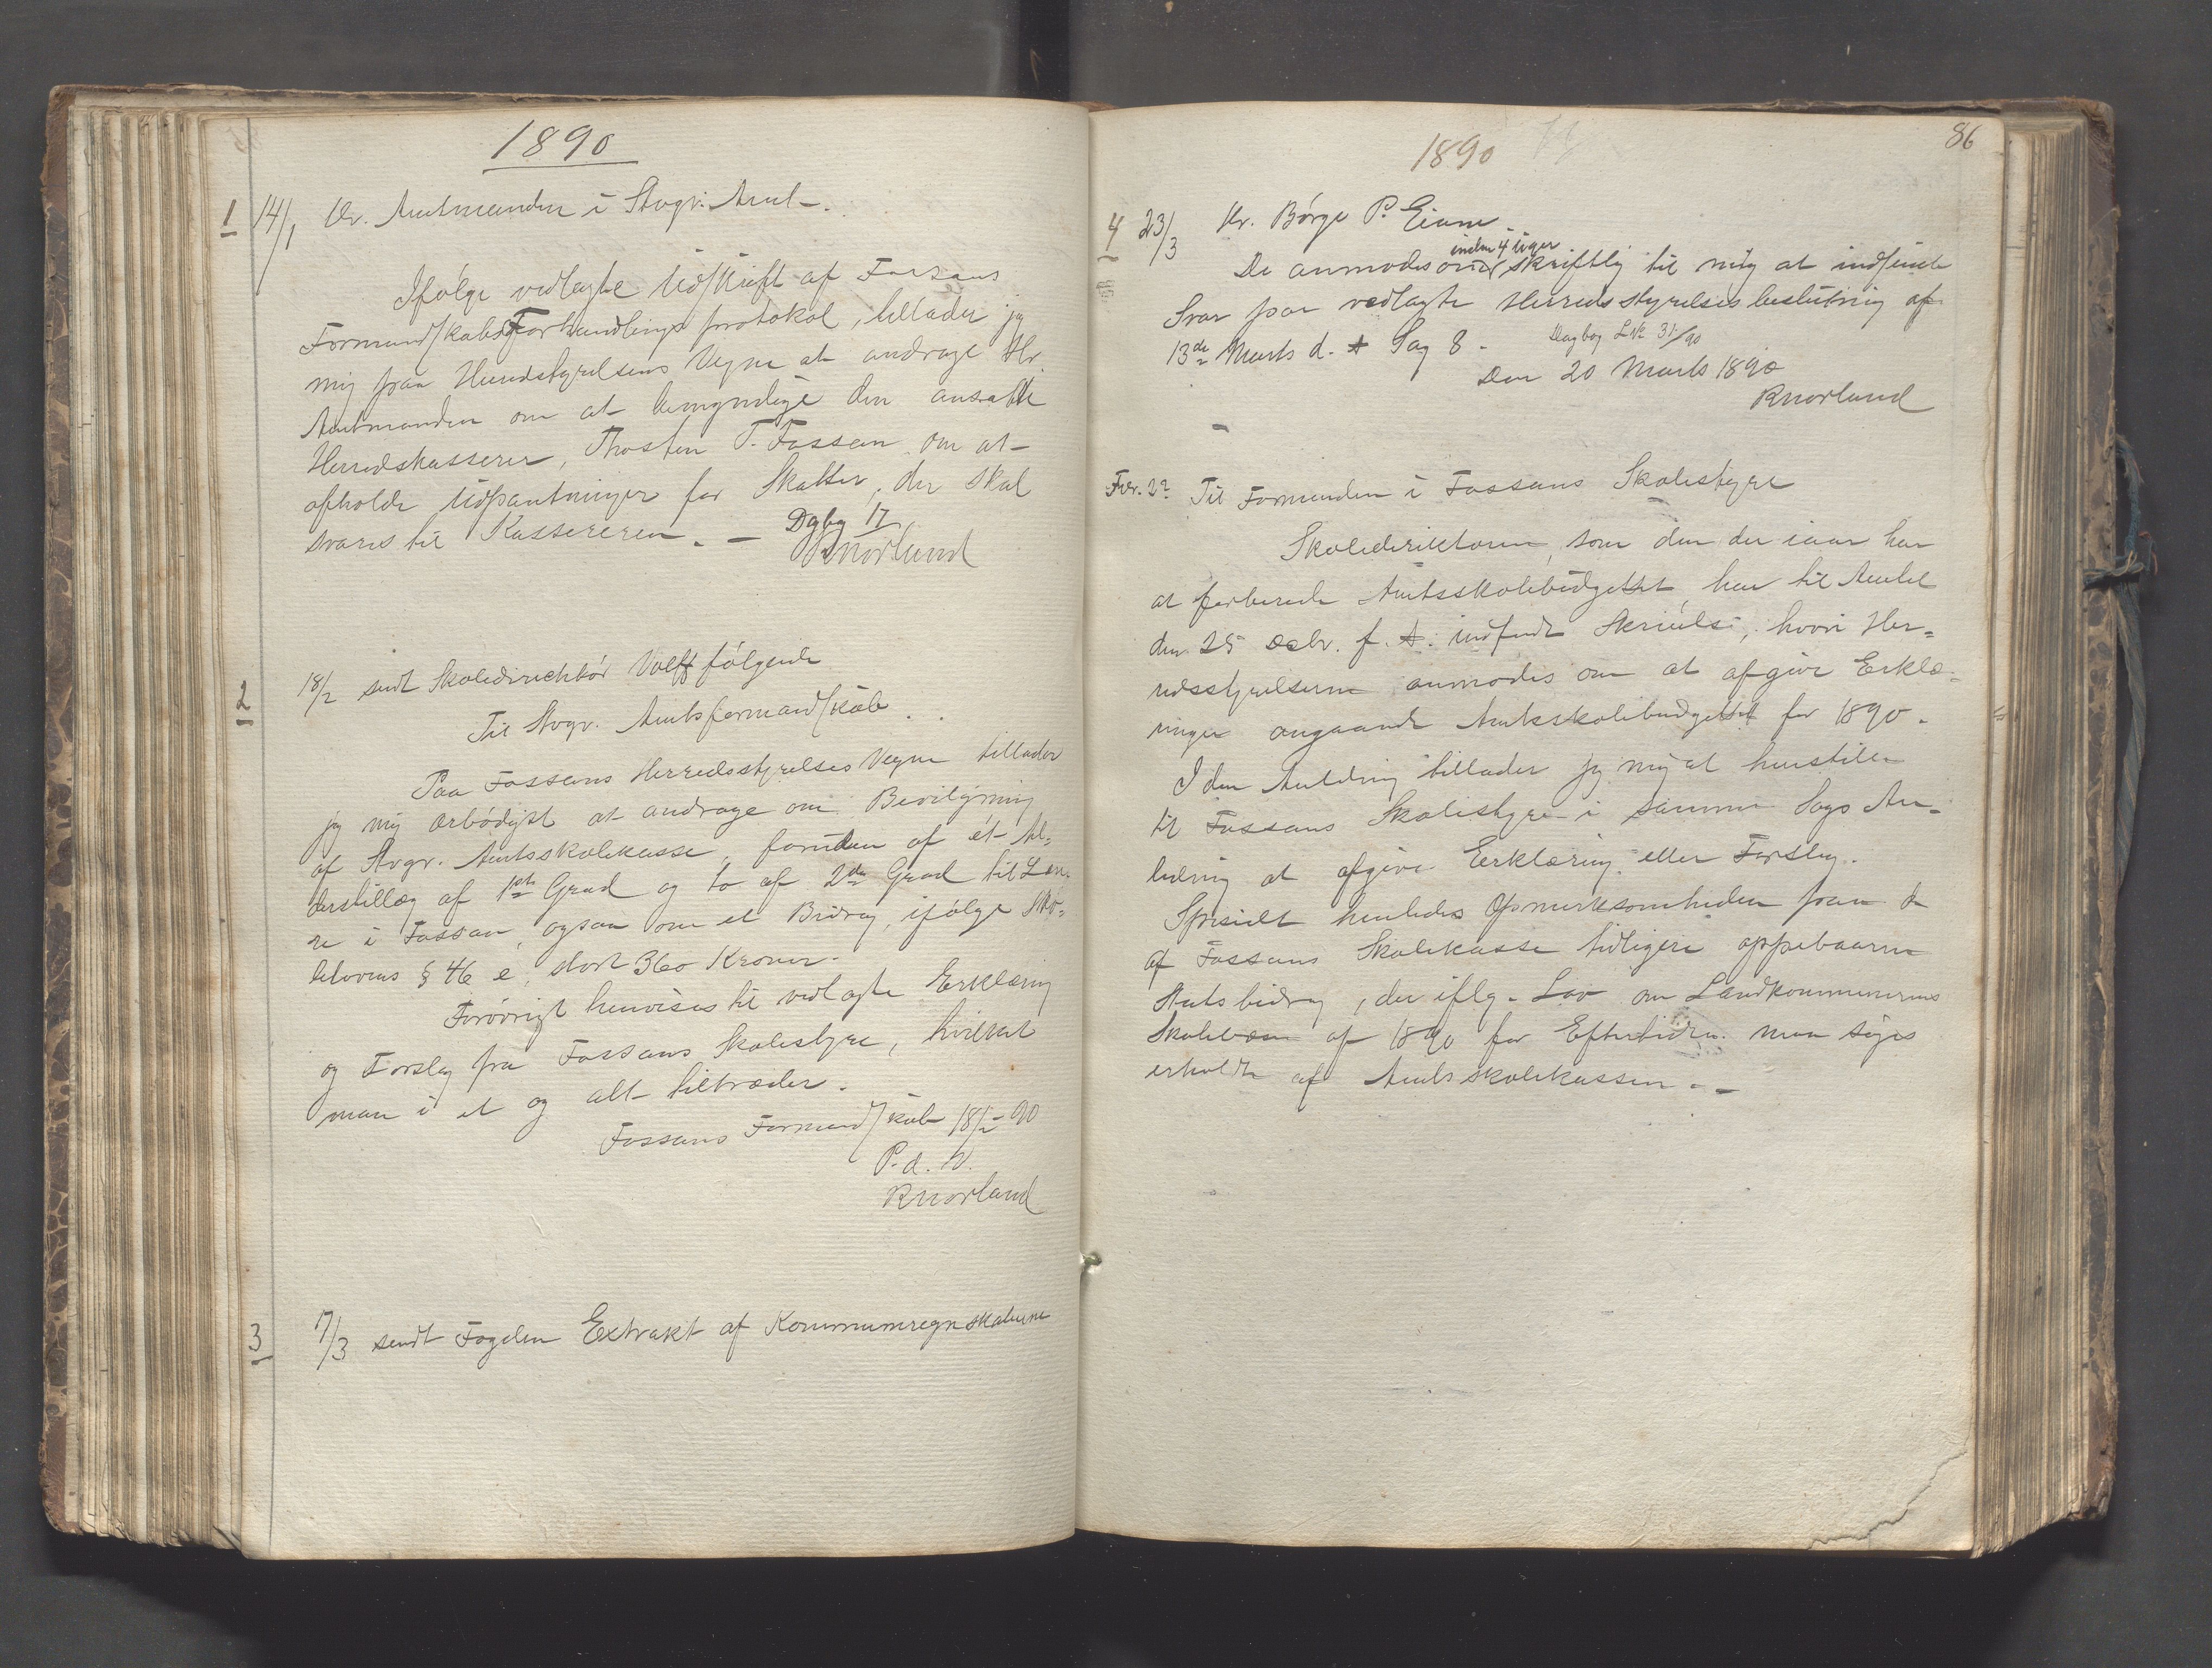 1890
1 14/1 Hr. Amtmanden i Stvgr. Amt.
Ifölge vedlagte Udskrift af Fossans
Formandskabs Forhandlingsprotokol, tillader jeg
mig paa Herredstyrelsens Vegne at andrage Hr
Amtmanden om at bemyndige den ansatte
Herredskasserer, Thosten T. Fossan om at
afholde Udpantninger for Skatter, der skal
svares til Kassereren. –
Dgbg 17
R Norland
2 18/2 sendt Skoledirecktör Volff fölgende
Til Stvgr. Amtsformandskab.
Paa Fossans Herredsstyrelses Vegne tillader
jeg mig ærbödigst at andrage om Bevilgning
af Stvgr. Amtsskolekasse, foruden af ét Al-
derstillæg af 1ste Grad og to af 2den Grad til Læ-
re i Fossan, ogsaa om et Bidrag, ifölge Sko-
lelovens § 46 e, stort 360 Kroner.
Forövrigt henvises til vedlagte Erklæring
og Forslag fra Fossans Skolestyre, hvilket
man i et og alt tiltræder.
Fossans Formandskab 18/2 90
P. d. V.
R Norland
3 7/3 sendt Fogden Extrakt af Kommuneregnskaberne
86
1890
4 23/3 Hr. Börge P. Eiane.
inden 4 Uger
De anmodes om skriftlig til mig at indsende
Svar paa vedlagte Herredsstyrelses beslutning af
13de Marts d. A Sag 8.
Dagbog L№ 31/90
Den 20 Marts 1890
R Norland
Til Formanden i Fossans Skolestyre
Skoledirektören, som den der iaar har
at forberede Amtsskolebudgettet, har til Amtet
den 25 Octbr. f. A. indsendt Skrivelse, hvori Her-
redsstyrelserne anmodes om at afgive Erklæ-
ringer angaaende Amtsskolebudgettet for 1890.
I den Anledning tillader jeg mig at henstille
til Fossans Skolestyre i samme Sags An-
ledning at afgive Erklæring eller Forslag.
Specielt henledes Opmerksomheden paa de
af Fossans Skolekasse tidligere oppebaarne
Statsbidrag, der iflg. Lov om Landkommunernes
Skolevæsen af 1890 for Eftertiden maa söges
erholdte af Amtsskolekassen. –